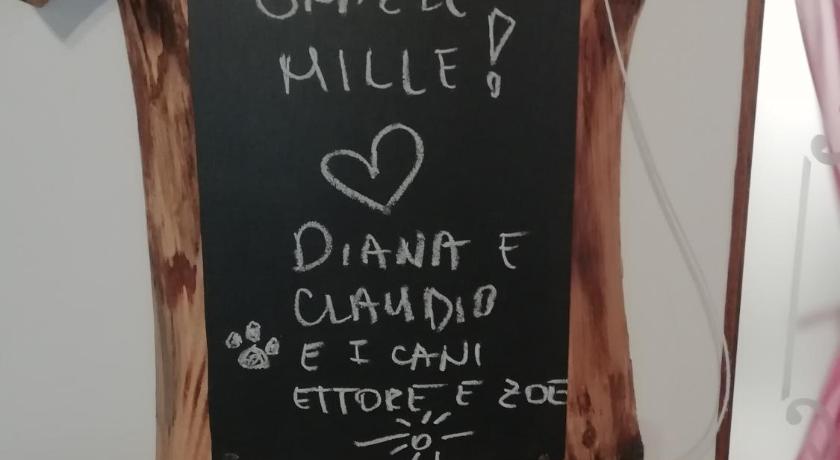 MILLE!
DIANA E
CLAUDIO
E I CANI
ETTORE E ZOE